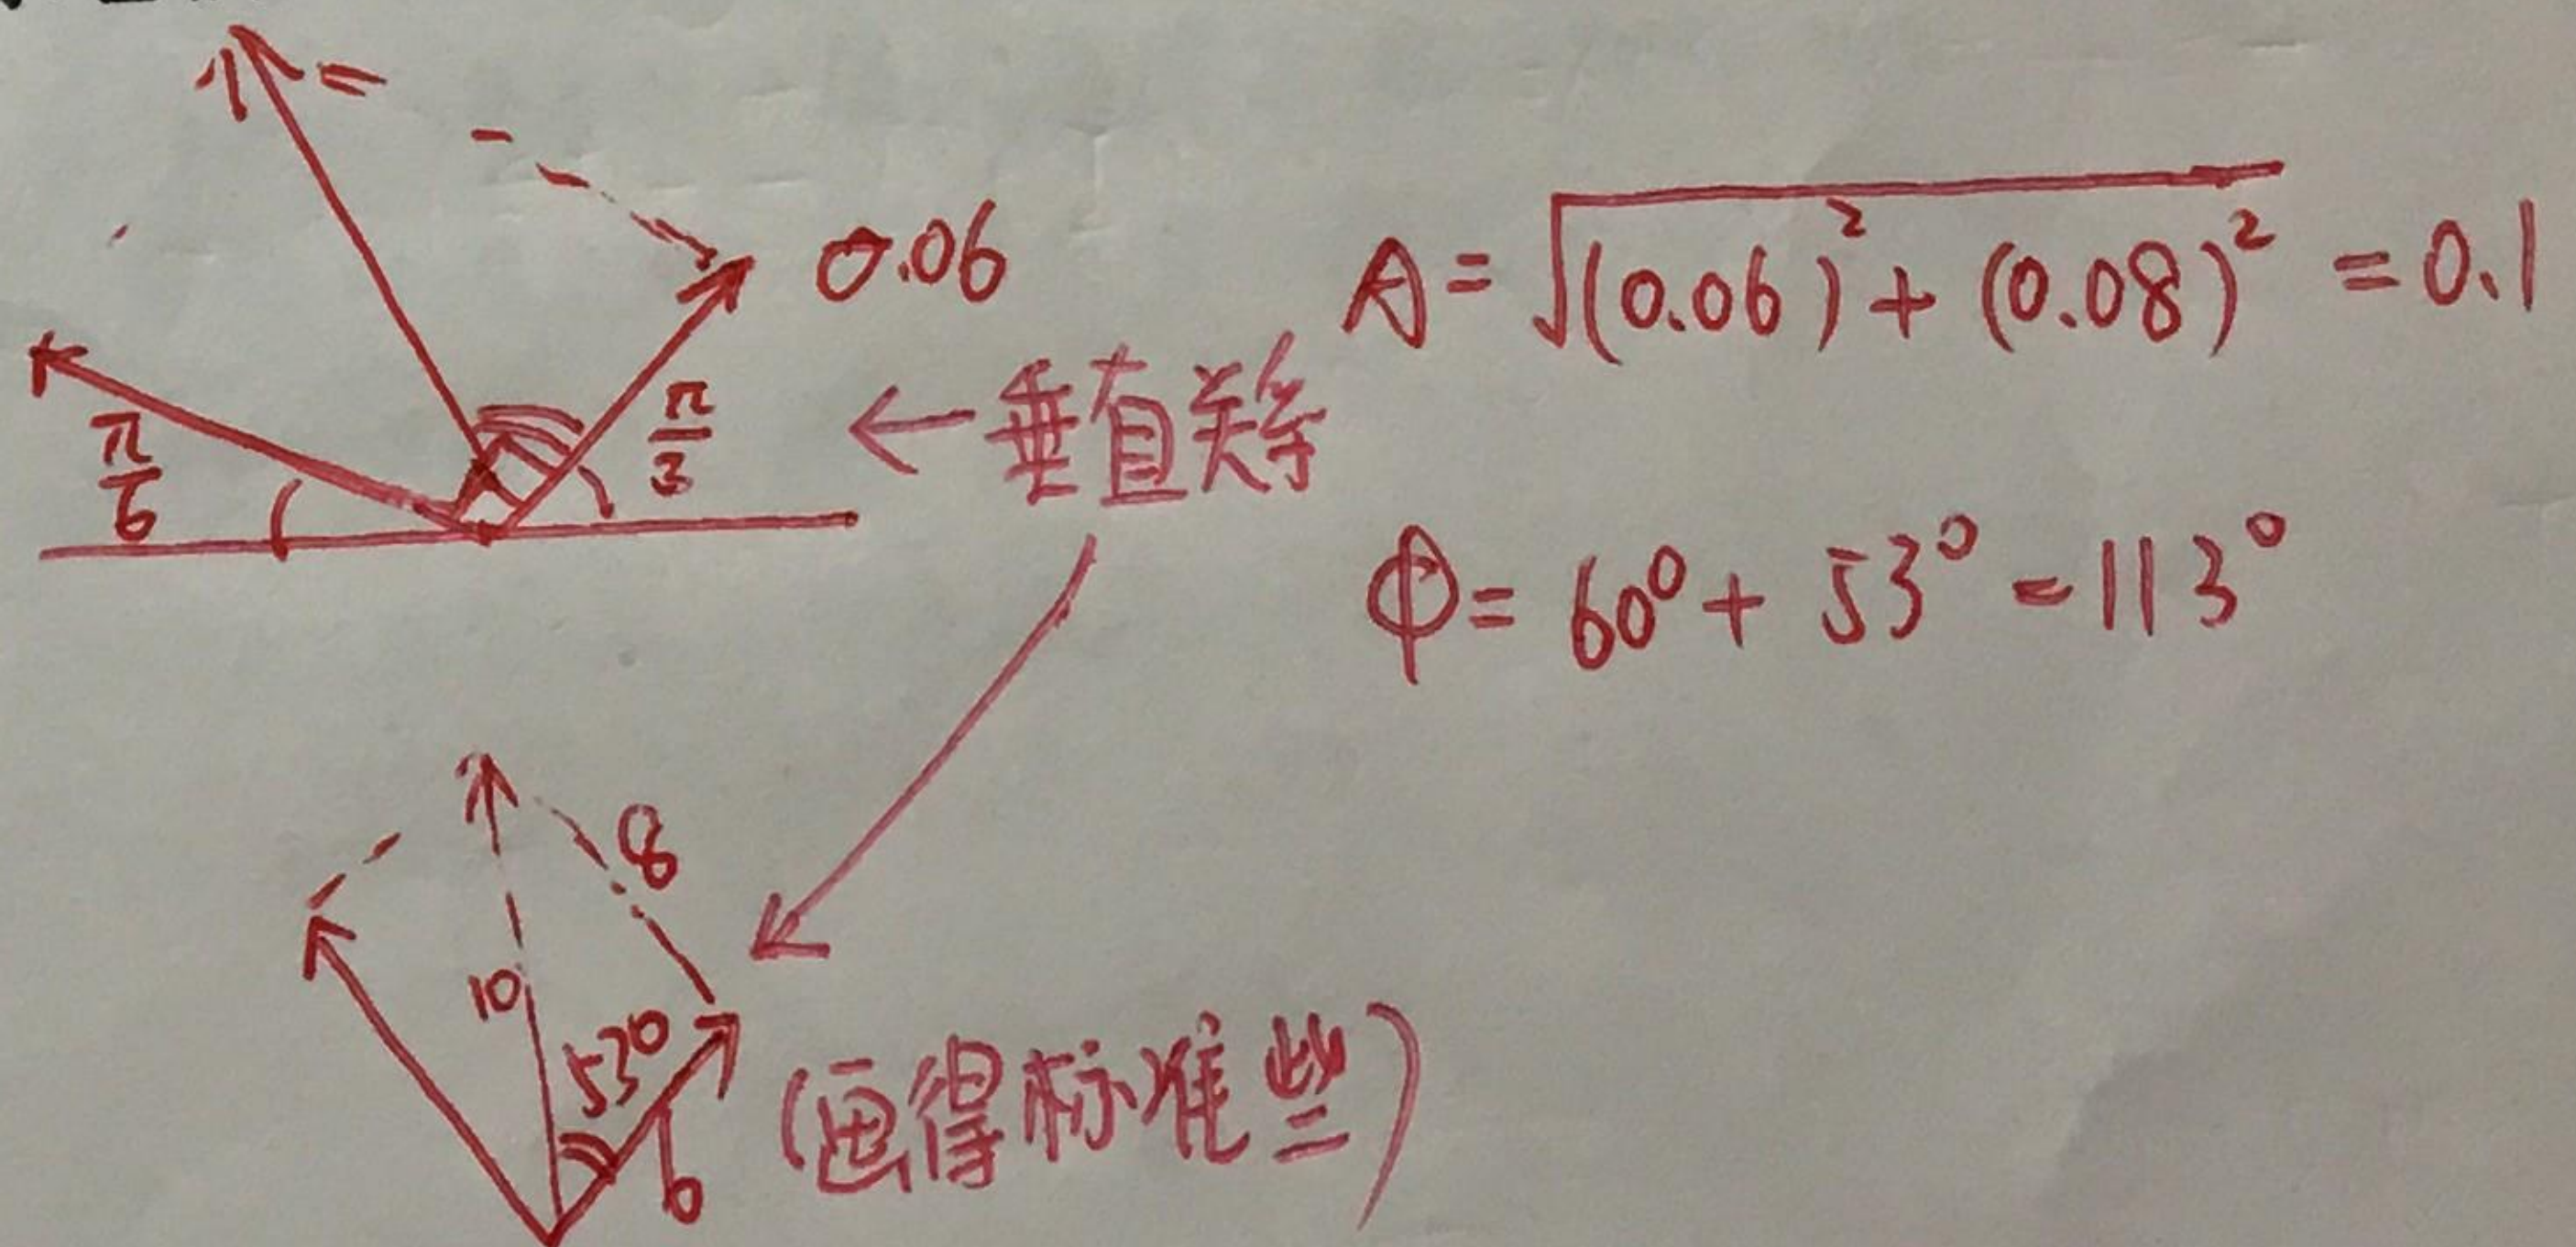 0.06
A = √(0.06)² + (0.08)² = 0.1
π/6
π/3
← 垂直关系
φ = 60° + 53° = 113°
8
10
53°
6
(画得标准些)